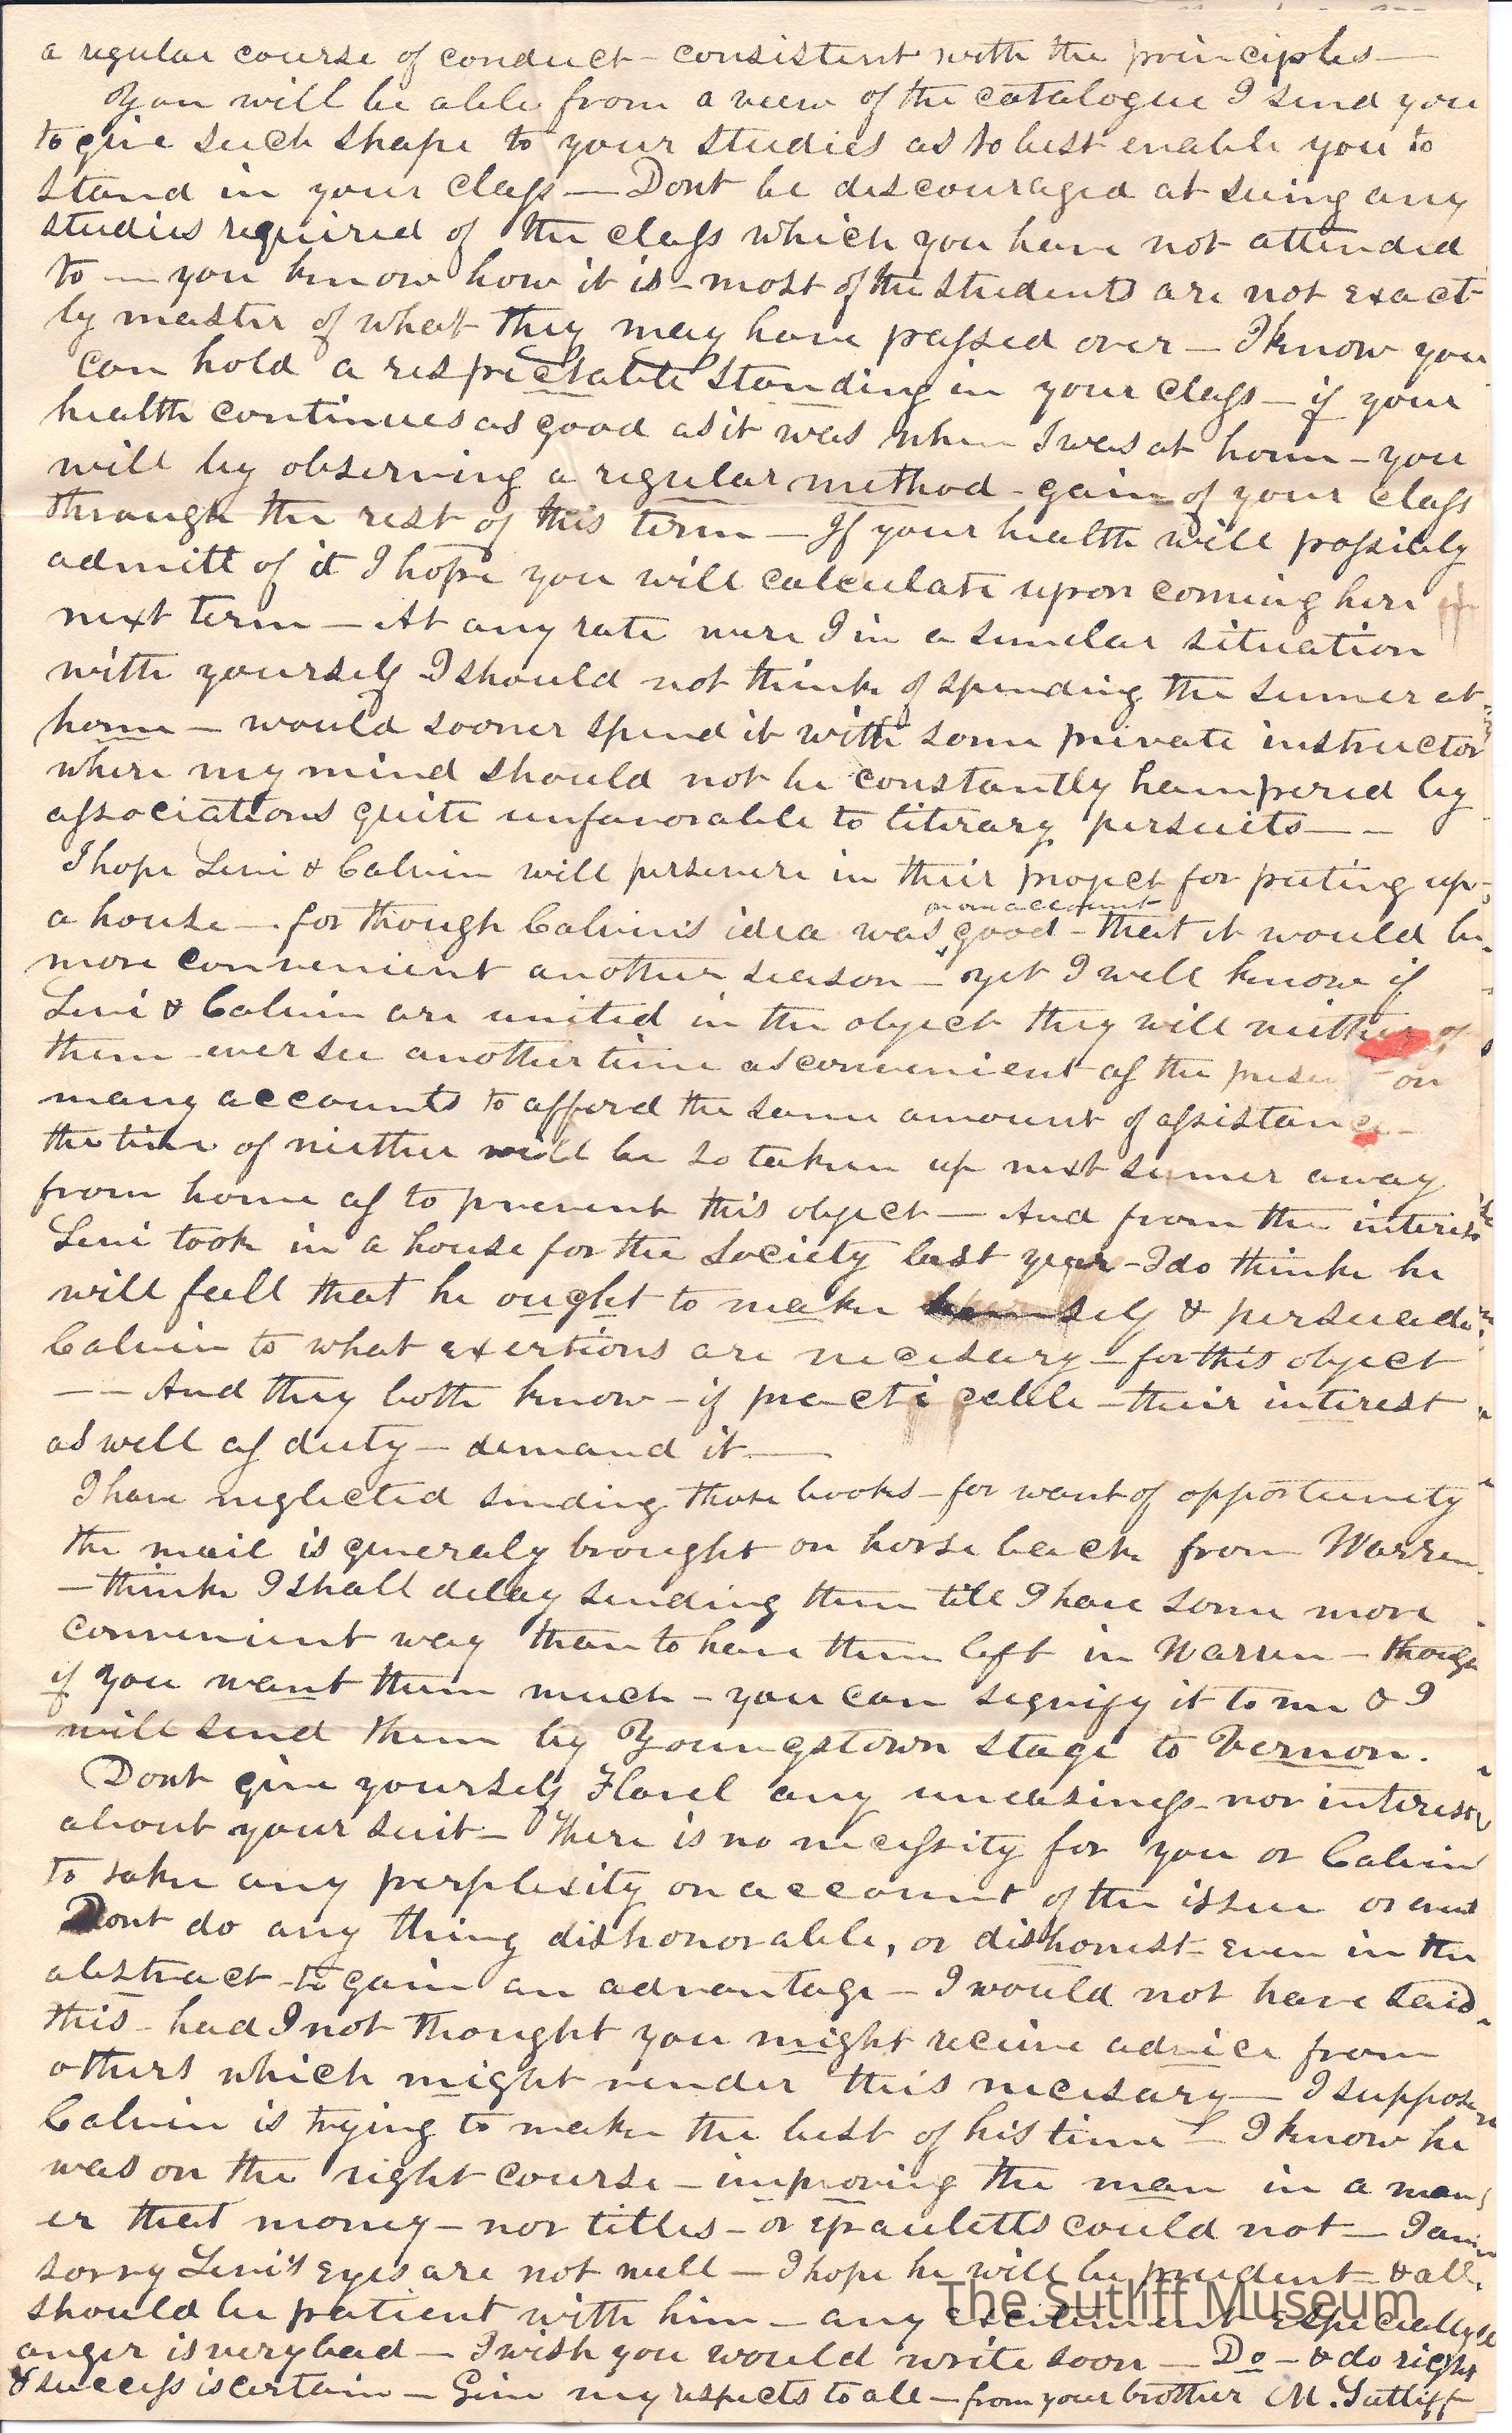 a regular course of conduct - consistent with the principles —
You will be able from a view of the catalogue I send you
to give such shape to your studies as to best enable you to
stand in your class — Dont be discouraged at seing any
studies required of the class which you have not attended
to — you know how it is - most of the students are not exact-
ly master of what they may have passed over — I know you
can hold a respectable standing in your class — if your
health continues as good as it was when I was at home - you
will by observing a regular method - gain of your class
through the rest of this term — If your health will possibly
admitt of it I hope you will calculate upon coming here
next term — At any rate were I in a similar situation
with yourself I should not think of spending the sumer at
home — would sooner spend it with some private instructor
where my mind should not be constantly hampered by
associations quite unfavorable to literary pursuits — -
I hope Levi & Calvin will persevere in their project for puting up
a house — for though Calvin's idea was on one account good - that it would be
more convenient another season — yet I well know if
Levi & Calvin are united in the object they will neither of
them ever see another time as convenient as the present on
many accounts to afford the same amount of assistance -
the time of neither will be so taken up next sumer away
from home as to prevent this object — And from the interest
Levi took in a house for the Society last year - I do think he
will feell that he ought to make self & persuade
Calvin to what exertions are necesary — for this object
— - And they both know - if practicable - their interest
as well as duty — demand it —
I have neglected sending those books - for want of opportunity
the mail is generaly brought on horse back from Warren
- think I shall delay sending them till I have some more
convenient way than to have them left in Warren — though
if you want them much - you can signify it to me & I
will send them by Youngstown stage to Vernon.
Dont give yourself Flavel any uneasiness - nor interest
about your suit — There is no necessity for you or Calvin
to take any perplexity on account of the issue or event
Dont do any thing dishonorable, or dishonest - even in the
abstract - to gain an advantage — I would not have said
this - had I not thought you might recieve advice from
others which might render this necesary — I suppose
Calvin is trying to make the best of his time — I know he
was on the right course - improving the man in a man
er that money - nor titles - or epauletts could not — I am
sorry Levi's eyes are not well — I hope he will be prudent - & all
should be patient with him — any excitement especially
anger is very bad — I wish you would write soon — Do - & do right
& success is certain — Give my respects to all - from your brother M. Sutliff
The Sutliff Museum